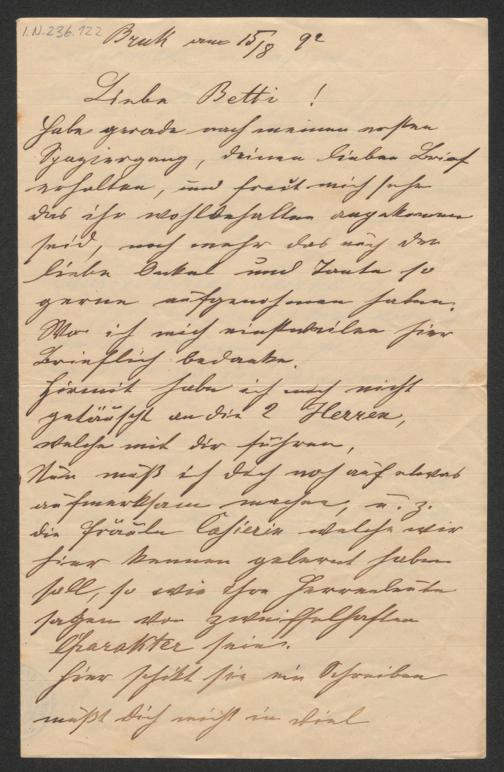 I.N. 236.122
Bruk am 15/8 92
Liebe Betti !
Habe gerade nach meinen ersten
Spaziergang, deinen lieben Brief
erhalten, und freut mich sehr
das ihr wohlbehalten angekommen
seid, noch mehr das euch der
liebe Onkel und Tante so
gerne aufgenohmen haben.
Wo ich mich einstweilen hier
Brieflich bedanke.
Hirmit habe ich mich nicht
getäuscht an die 2 Herren,
welche mit dir führen,
Nun muß ich dich noch auf etwas
aufmerksam machen, u. z.
die Fräuln Casierin welche wir
hier kennen gelernt haben
soll, so wie ihre Herrenleute
sagen von zweiffelhaften
Charakter sein.
Hier schikt sie ein Schreiben
mußt dich nicht in viel